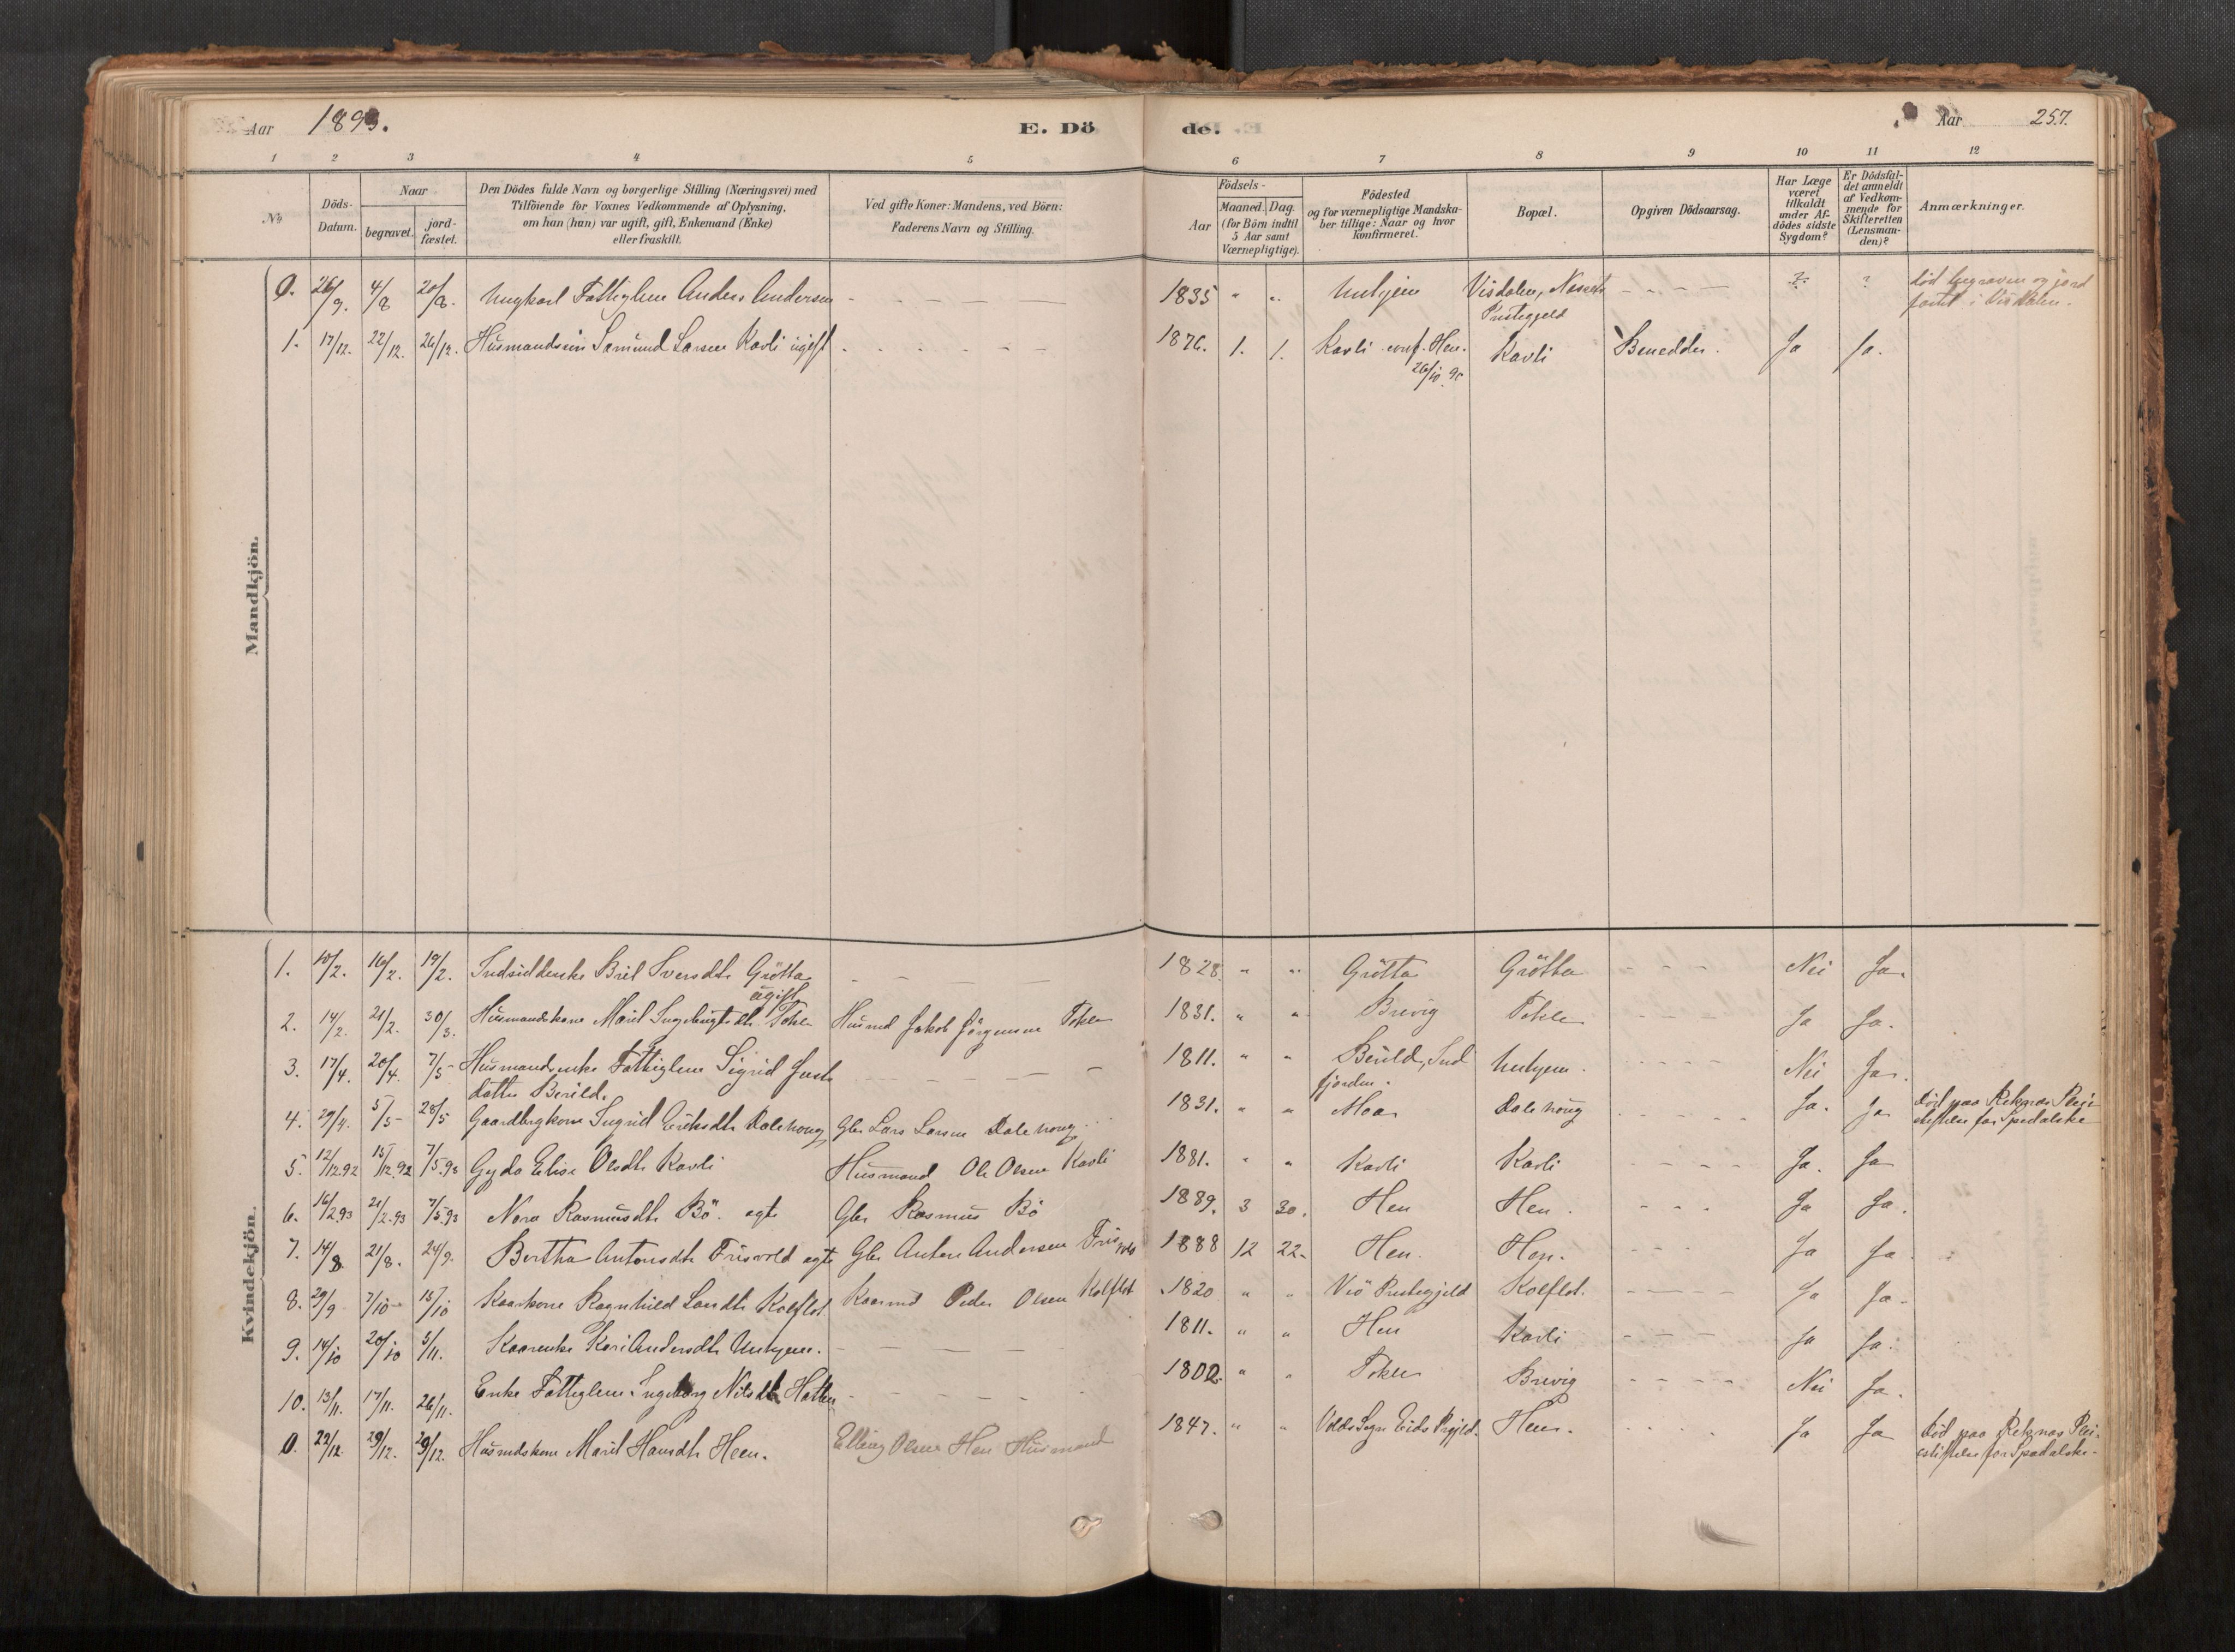 Aar 1893. E. Döde. Aar 257.
1 2 3 4 5 6 7 8 9 10 11 12
No
Döds-Datum.
Naar
begravet.
jord-fæstet.
Den Dödes fulde Navn og borgerlige Stilling (Næringsvei) med
Tilföiende for Voxnes Vedkommende af Oplysning,
om han (hun) var ugift, gift, Enkemand (Enke)
eller fraskilt.
Ved gifte Koner: Mandens, ved Börn:
Faderens Navn og Stilling.
Födsels-
Aar
Maaned. Dag.
(for Börn indtil
5 Aar samt
Værnepligtige).
Födested
og for værnepligtige Mandska-
ber tillige: Naar og hvor
konfirmeret.
Bopæl.
Opgiven Dödsaarsag.
Har Læge
været
tilkaldt
under Af-
dödes sidste
Sygdom?
Er Dödsfal-
det anmeldt
af Vedkom-
mende for
Skifteretten
(Lensman-
den)?
Anmærkninger.
Mandkjön.
0. 26/7. 4/8 20/8. Ungkarl Fattiglem Anders Andersen - - - - 1835 " " Unhjem Visdalen, Nesset - - - - ? ? Død begraven og jord
Prestegjeld fæstet i Visdalen.
1. 17/12. 22/12. 26/12. Husmandssøn Samund Larsen Kavli ugift - - - - 1876. 1. 1. Kavli conf. Hen. Kavli Benedder. Ja Ja.
26/10 90
Kvindekjön.
1. 10/2. 16/2. 19/2. Indsidderske Brit Iversdtr Grötta - - - 1828 " " Grötta Grötta - - - Nei Ja.
ugift
2. 14/2. 21/2. 30/3. Husmandskone Marit Ingebrigtsdtr Tokle Husmd Jakob Jörgensen Tokle 1831. " " Brevig Tokle Ja Ja.
3. 17/4. 20/4. 7/5 Husmandsenke Fattiglem Sigrid Juste - - - - 1811. " " Berild, Ind Unhjem. - - - - Nei Ja.
datter Berild. fjorden.
4. 29/4. 5/5 28/5 Gaardbrgkone Ingrid Eriksdtr Dalehoug Gbr Lars Larsen Dalehoug 1831. " " Moa Dalehoug - - - - Ja. Ja Død paa Reknæs Plei-
estiftelse for Spedalske
5. 12/12.92 15/12.92 7/5.93 Gyda Elise Olsdtr Kavli Husmand Ole Olsen Kavli 1881. " " Kavli Kavli - - - - Ja. Ja
6. 16/2.93 21/2.93 7/5.93 Nora Rasmusdtr Bö. ægte Gbr Rasmus Bö 1889. 3 30. Hen Hen. - - - Ja Ja.
7. 14/8. 21/8. 24/9. Bertha Antonsdtr Frisvold ægte Gbr Anton Andersen Frisvold 1888 12 22. Hen. Hen. - - - Ja Ja.
8. 29/9 7/10 15/10 Kaarkone Ragnhild Larsdtr Kolflot Kaarmd Peder Olsen Kolflot 1820 " " Veö Prestegjeld Kolflot. - - - - Ja Ja.
9. 14/10 20/10 5/11. Kaarenke Kari Andersdtr Unhjem. - - - - 1811. " " Hen Kavli - - - - Ja Ja.
10. 13/11. 17/11. 26/11. Enke Fattiglem Ingeborg Nilsdtr Hatlen - - - - 1802. " " Tokle Brevig - - - - Nei Ja.
0. 22/12 29/12. 29/12. Husmdskone Marit Hansdtr Heen. Elling Olsen Hen Husmand 1847. " " Volds Sogn Eids Prgjld. Hen. - - - - Ja Ja Død paa Reknæs Plei-
estiftelse for Spedalske.